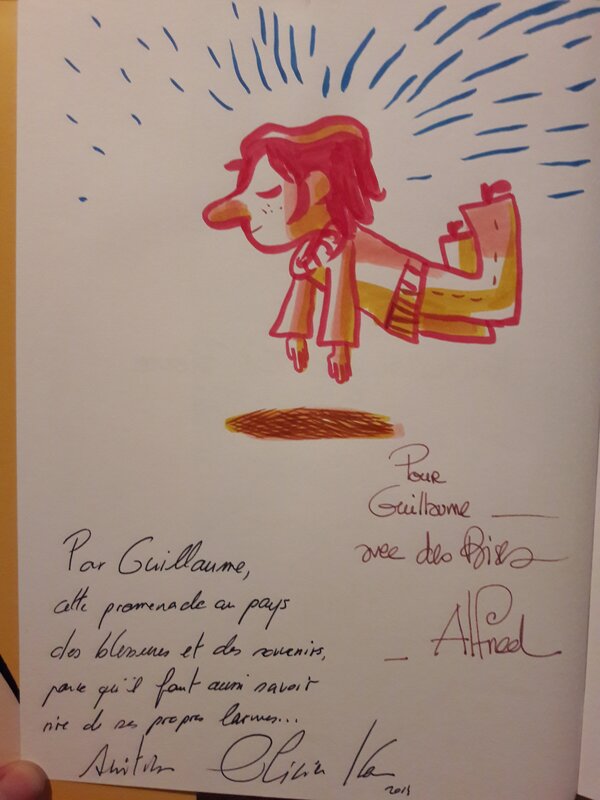 Pour
Guillaume
avec des Bises
Alfred
Par Guillaume,
cette promenade au pays
des blessures et des souvenirs,
parce qu'il faut aussi savoir
rire de ses propres larmes...
Olivier Ka